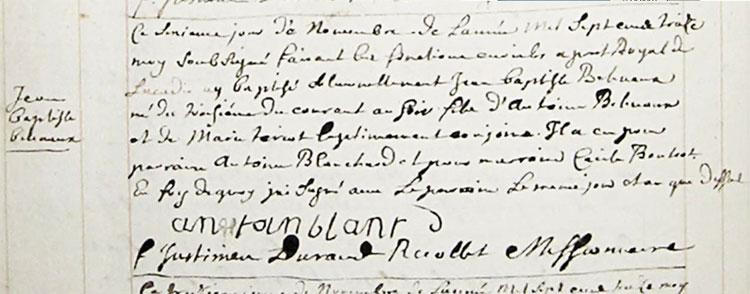 Ce sixieme jour de Novembre de Lannée Mil Sept cens treize
moy Soubsigné faisant les fonctions curiales a port Royal de
Lacadie ay baptisé Jean baptiste Beliveaux
né du troisiéme du courant au Soir fils d'Antoine Beliveaux
et de Marie teriot legitimement conjoins. Il a eu pour
parrain Antoine Blanchard et pour marraine Cecile Boudrot.
En foy de quoy j'ai Signé avec Le parrain Le meme jour et an que dessus
Jean
baptiste
beliveaux
antoin blanr
f Justinien Durand Recollet Missionnaire
de Novembre de Lannée Mil Sept cens treize moy